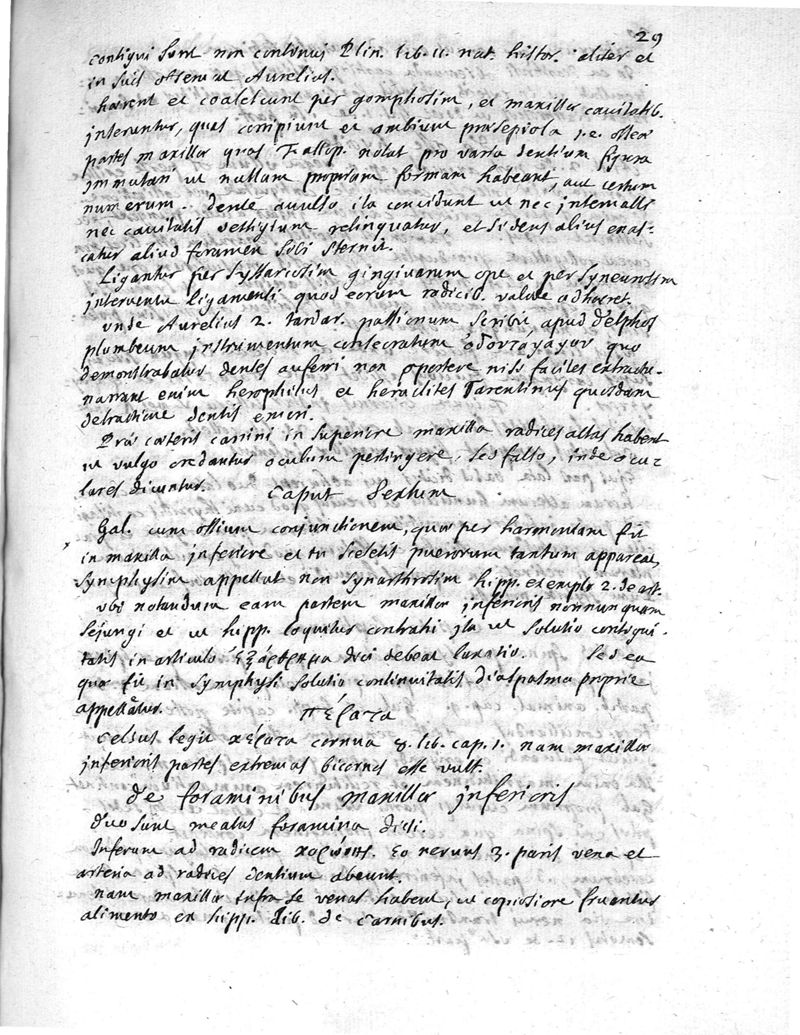 29
contigui sunt non continui Plin. lib. 11. nat. histor. aliter et
in suis ostendit Aurelius.
haerent et coalescunt per gomphosim, et maxillae cavitatib.
inseruntur, quas concipiunt et ambiunt praesepiola i.e. osseae
partes maxillae quas Fallop. notat pro varia dentium figura
immutari ut nullam propriam formam habeant, aut certum
numerum. dente avulso ita concidunt ut nec intervalli
nec cavitatis vestigium relinquatur, et si dens alius enas-
catur aliud foramen sibi sternit.
Ligantur per syssarcosim gingivarum ope et per syneurosim
interventu ligamenti quod eorum radicib. valide adhaeret.
unde Aurelius 2. tardar. passionum scribit apud Delphos
plumbeum instrumentum consecratum οδονταγαγον quo
demonstrabatur dentes auferri non oportere nisi faciles extractu.
narrant enim herophilus et heraclites Tarentinus quosdam
detractione dentis emori.
Prae caeteris canini in superiore maxilla radices altas habent
ut vulgo credantur oculum pertingere, sed falso, inde ocu-
lares dicuntur.
Caput Sextum
Gal. eam ossium conjunctionem, quae per harmoniam fit
in maxilla inferiore et in sceletis puerorum tantum appareat,
symphysim appellat non synarthrosim hipp. exemplo 2. de art.
ubi notandum eam partem maxillae inferioris nonnunquam
sejungi et ut hipp. loquitur contrahi ita ut solutio contigui-
tatis in articulo ἐξάρθρημα dici debeat luxatio. Sed ea
quae fit in symphysi solutio continuitatis diaspasma proprie
appellatur.
πέρατα
Celsus legit κέρατα cornua 8. lib. cap. 1. nam maxillae
inferioris partes extremas bicornes esse vult.
de foraminibus maxillae inferioris
duo sunt meatus foramina dicti.
Inferum ad radicem κορώνης. Eo nervus 3. paris vena et
arteria ad radices dentium abeunt.
nam maxillae infra se venas habent, ut copiosiore fruantur
alimento ex hipp. lib. de Carnibus.